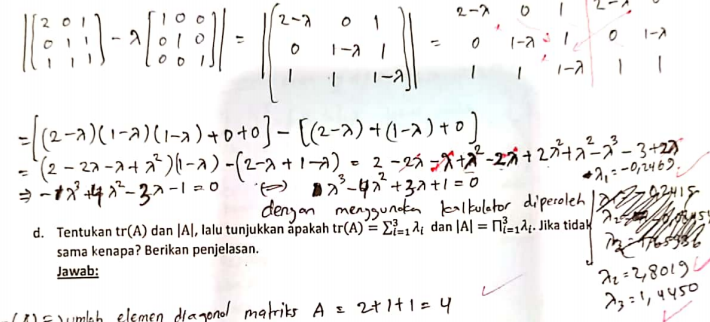 |[2 0 1 0 1 1 1 1 1] - λ [1 0 0 0 1 0 0 0 1]| = |[2-λ 0 1 0 1-λ 1 1 1 1-λ]| = 2-λ 0 1 2-λ
0 1-λ 1 0 1-λ
1 1 1-λ 1 1
= [(2-λ)(1-λ)(1-λ)+0+0] - [(2-λ)+(1-λ)+0]
= (2-2λ-λ+λ²)(1-λ)-(2-λ+1-λ) = 2-2λ-λ+λ²-2λ+2λ²+λ²-λ³-3+2λ
⇒ -1λ³+4λ²-3λ-1=0 ⇔ λ³-4λ²+3λ+1=0
λ₁=-0,2469.
dengan menggunakan kalkulator diperoleh
d. Tentukan tr(A) dan |A|, lalu tunjukkan apakah tr(A) = Σ³ᵢ₌₁ λᵢ dan |A| = Π³ᵢ₌₁ λᵢ. Jika tidak
sama kenapa? Berikan penjelasan.
Jawab:
λ₂=2,8019
λ₃=1,4450
= Jumlah elemen diagonal matriks A = 2+1+1 = 4